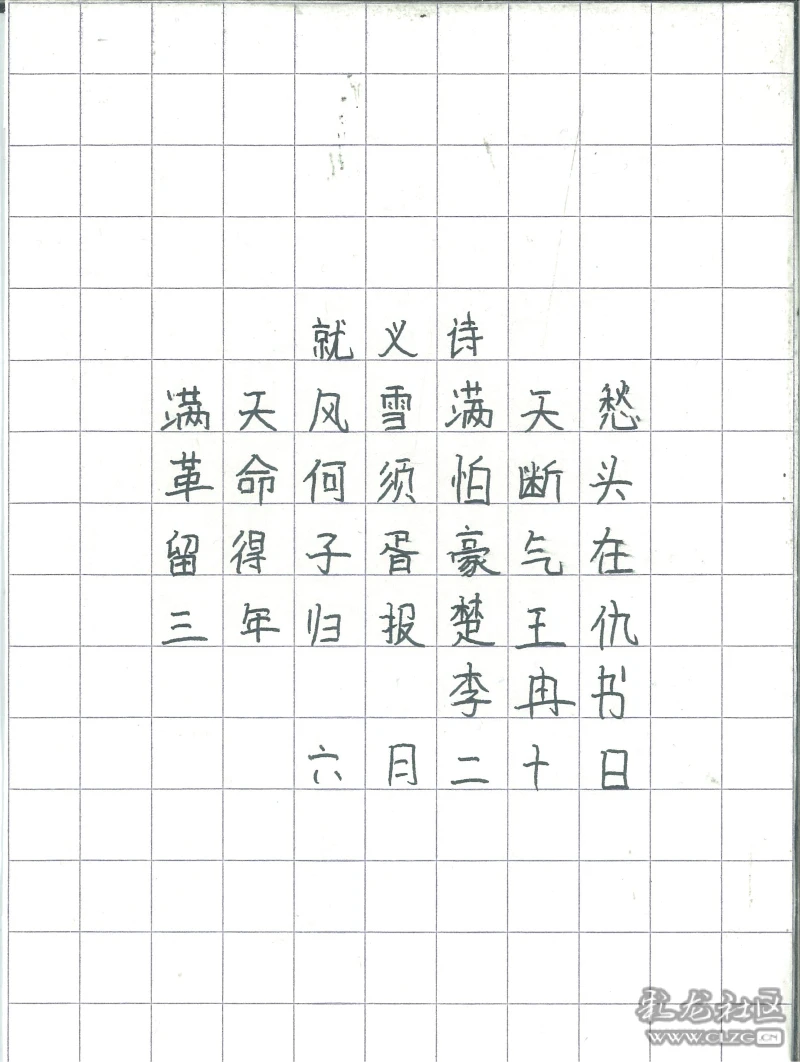 就义诗
满天风雪满天愁
革命何须怕断头
留得子胥豪气在
三年归报楚王仇
李冉书
六月二十日
龙社区
www.CLZG.CN